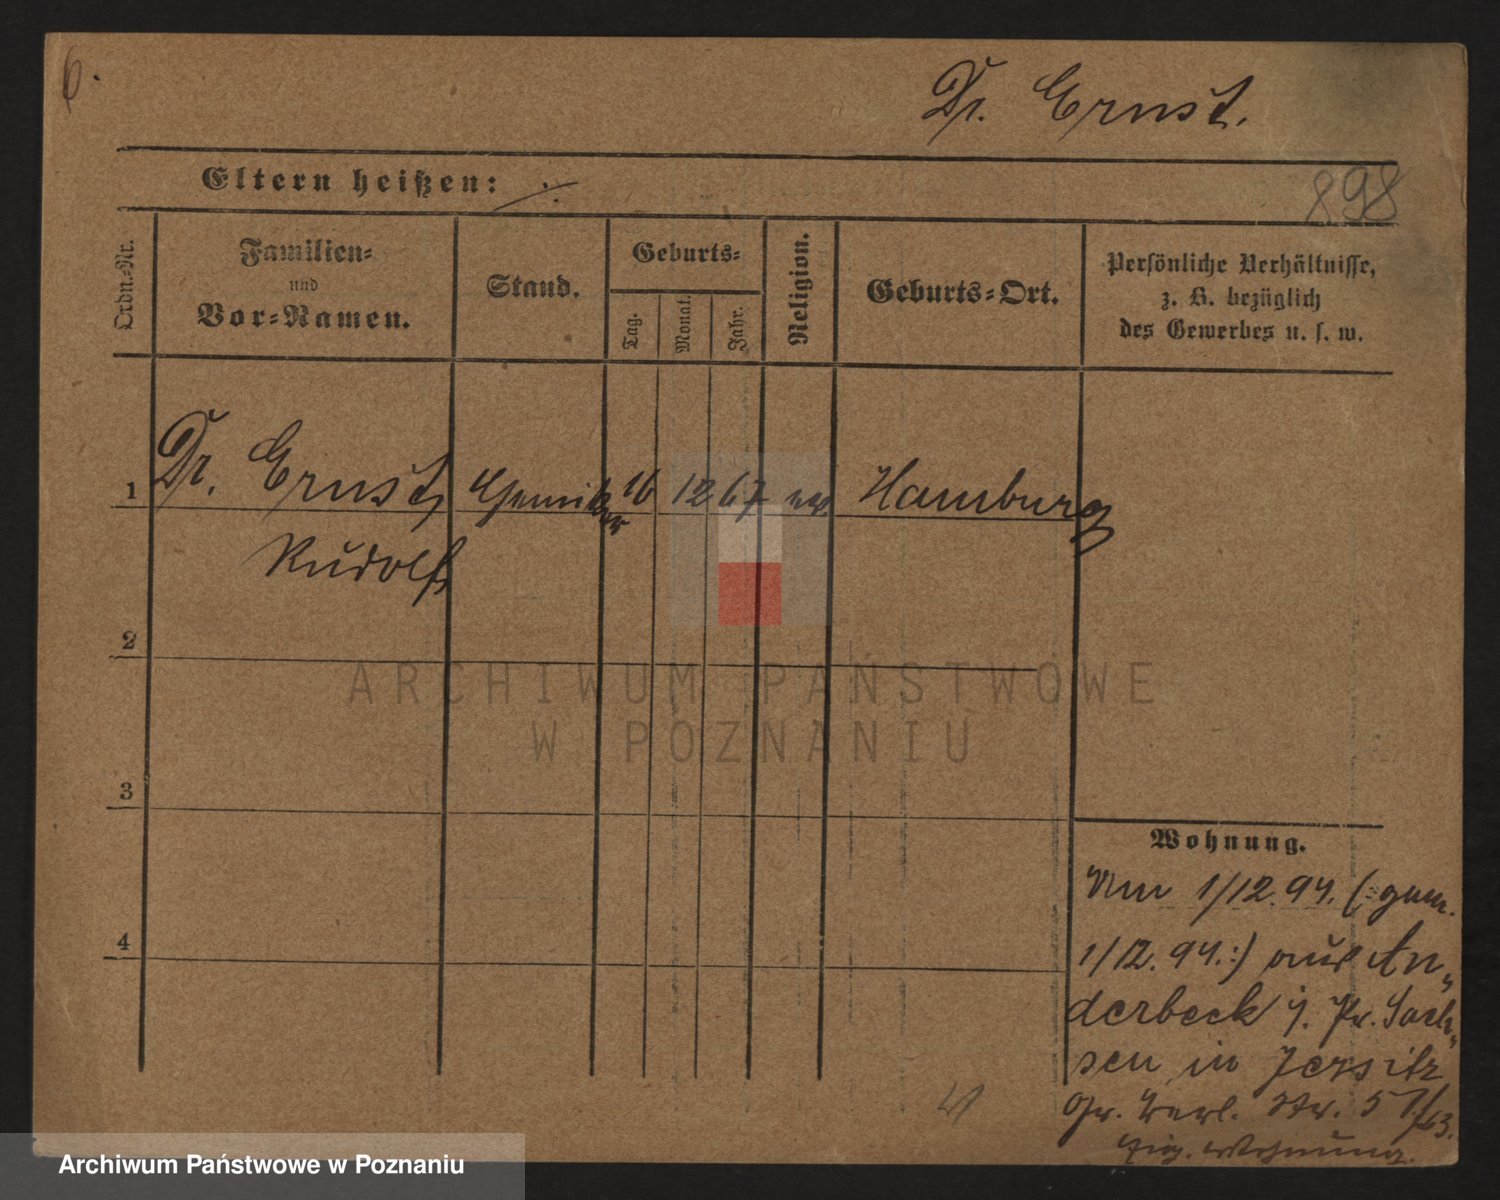 6.
Dr. Ernst.
Eltern heißen: ./.
898
Ordn.-Nr.
Familien-
und
Vor-Namen.
Stand.
Geburts-
Tag.
Monat.
Jahr.
Religion.
Geburts-Ort.
Persönliche Verhältnisse,
z. B. bezüglich
des Gewerbes u. s. w.
1 Dr. Ernst, Chemiker 16 12 67 ev. Hamburg
Rudolf
2
3
4
Wohnung.
Am 1/12. 94. (: gem.
1/12. 94. :) aus An-
derbeck i. Pr. Sach-
sen in Jersitz
Gr. Berl. Str. 57/63.
Eig. Wohnung.
ARCHIWUM PAŃSTWOWE
W POZNANIU
Archiwum Państwowe w Poznaniu